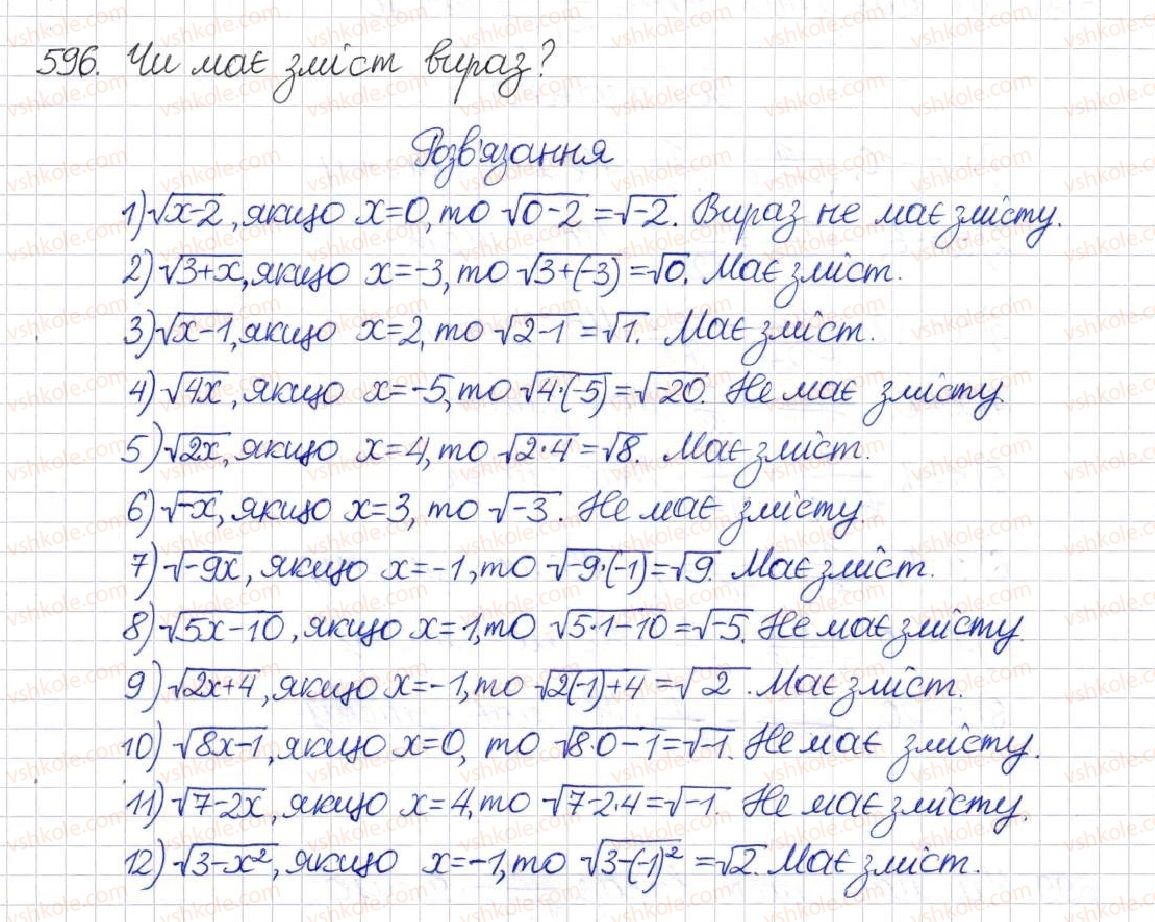 596. Чи має зміст вираз?
Розв'язання
1) √x-2, якщо x=0, то √0-2 = √-2. Вираз не має змісту.
2) √3+x, якщо x=-3, то √3+(-3) = √0. Має зміст.
3) √x-1, якщо x=2, то √2-1 = √1. Має зміст.
4) √4x, якщо x=-5, то √4·(-5) = √-20. Не має змісту.
5) √2x, якщо x=4, то √2·4 = √8. Має зміст.
6) √-x, якщо x=3, то √-3. Не має змісту.
7) √-9x, якщо x=-1, то √-9·(-1) = √9. Має зміст.
8) √5x-10, якщо x=1, то √5·1-10 = √-5. Не має змісту.
9) √2x+4, якщо x=-1, то √2(-1)+4 = √2. Має зміст.
10) √8x-1, якщо x=0, то √8·0-1 = √-1. Не має змісту.
11) √7-2x, якщо x=4, то √7-2·4 = √-1. Не має змісту.
12) √3-x², якщо x=-1, то √3-(-1)² = √2. Має зміст.